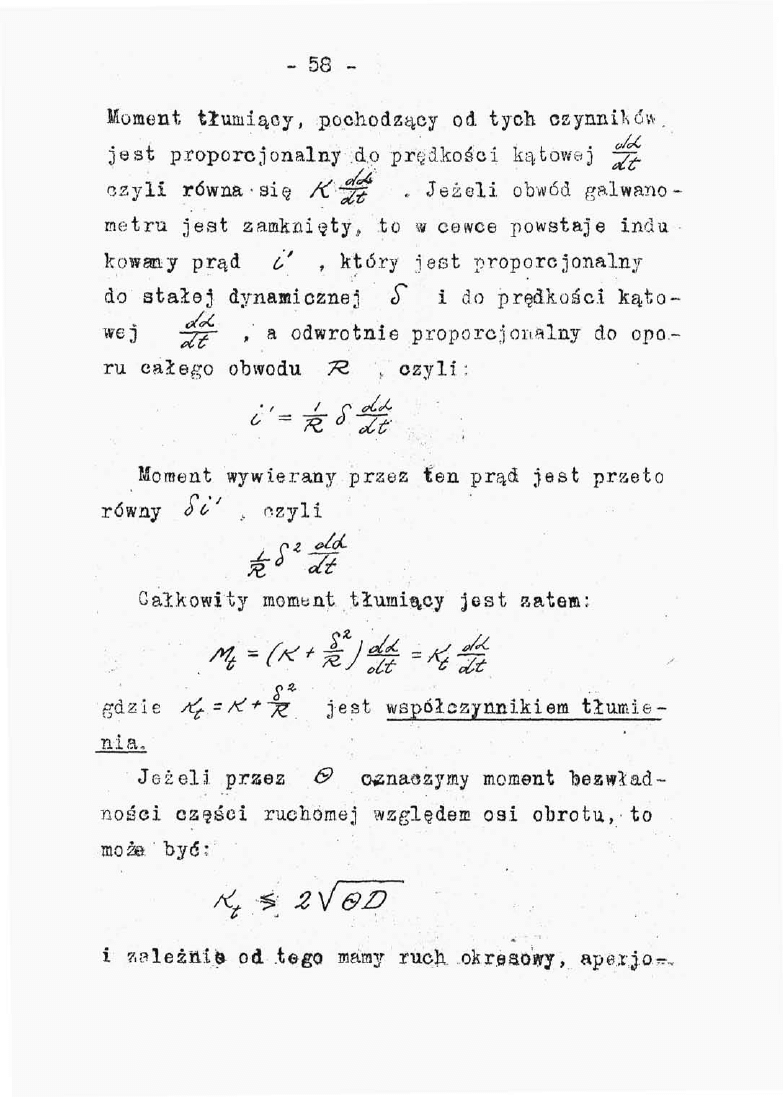 - 58 -
Moment tłumiący, pochodzący od tych czynników
jest proporcjonalny do prędkości kątowej dα/dt
czyli równa się K dα/dt . Jeżeli obwód galwano-
metru jest zamknięty, to w cewce powstaje indu
kowany prąd i' , który jest proporcjonalny
do stałej dynamicznej S i do prędkości kąto-
wej dα/dt , a odwrotnie proporcjonalny do opo-
ru całego obwodu R , czyli:
i' = 1/R S dα/dt
Moment wywierany przez ten prąd jest przeto
równy Si' , czyli
1/R S² dα/dt
Całkowity moment tłumiący jest zatem:
Mt = (K + S²/R) dα/dt = Kt dα/dt
gdzie Kt = K + S²/R jest współczynnikiem tłumie-
nia.
Jeżeli przez Θ oznaczymy moment bezwład-
ności części ruchomej względem osi obrotu, to
może być:
Kt ⪋ 2√ΘD
i zależnie od tego mamy ruch okresowy, aperjo-